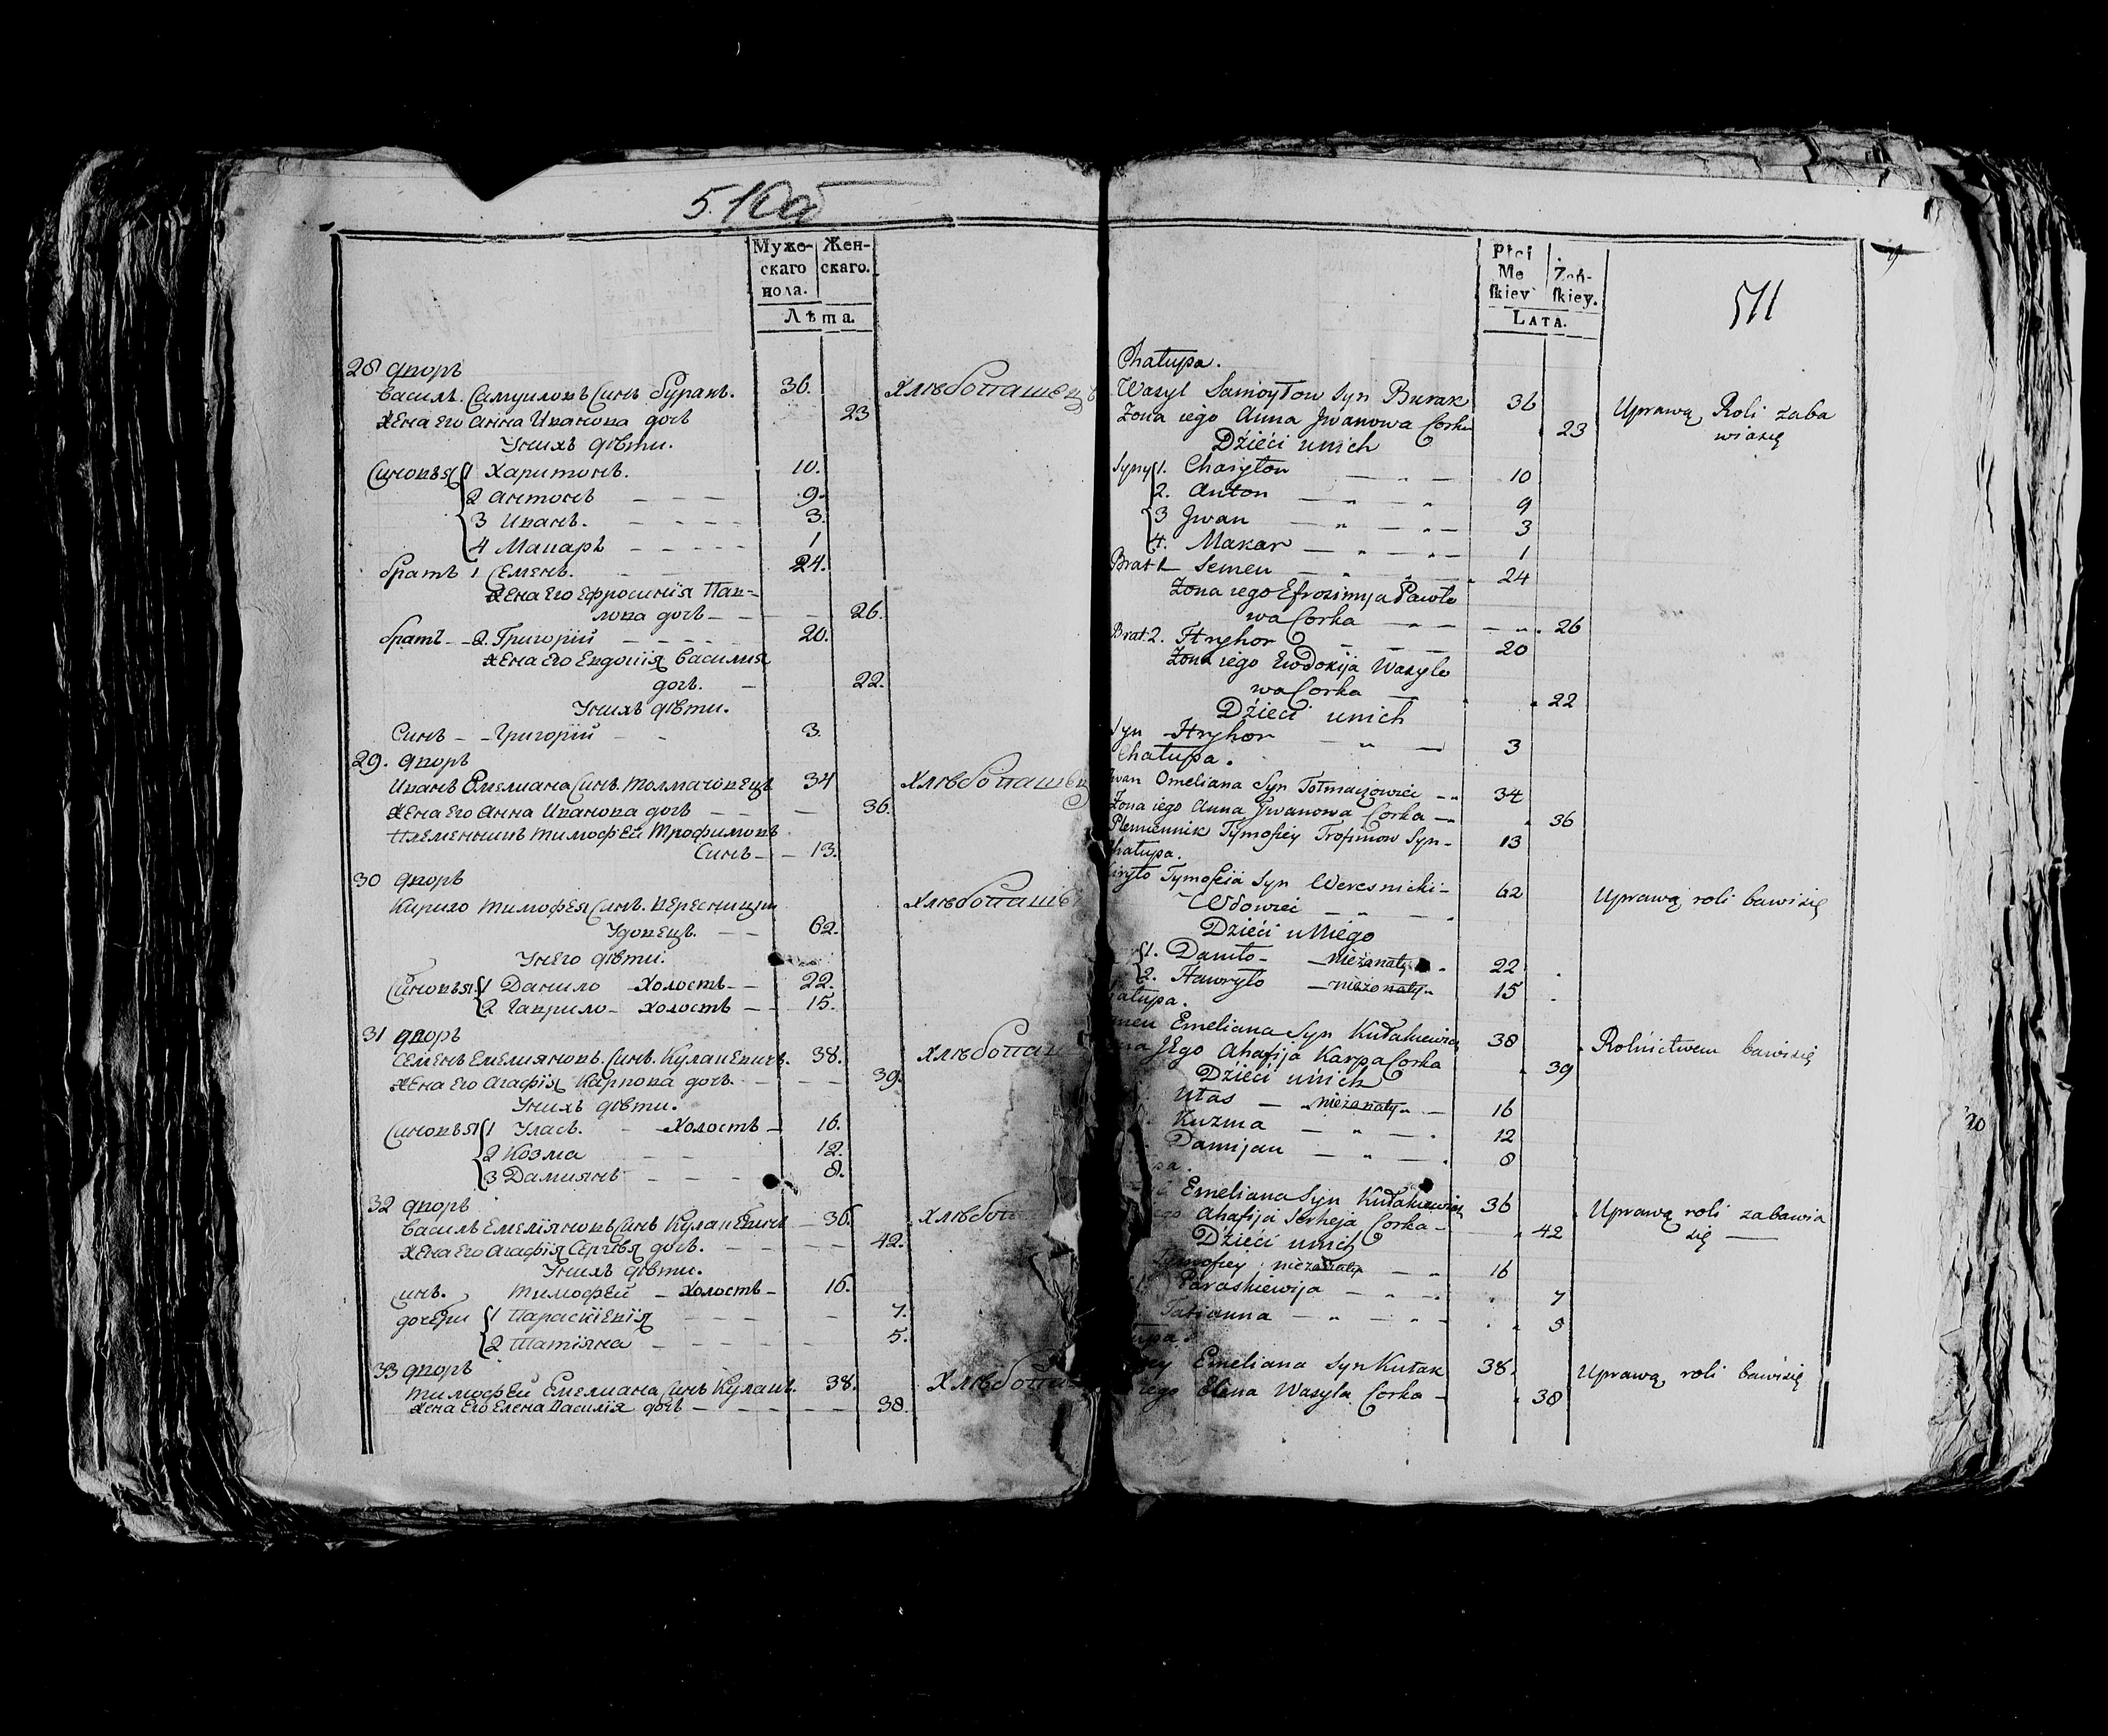 510об
Муже-
скаго
пола.
Жен-
скаго.
Лѣта.
28 дворъ
Василь Самуиловъ Синъ Буракъ. 36. Хлѣбопашецъ
Жена Его Анна Иванова дочь 23
У нихъ дѣти.
Синовья 1 Харитонъ. 10.
2 Антонъ 9.
3 Иванъ. 3.
4 Макаръ 1
братъ 1 Семенъ. 24.
Жена Его Ефросинія Пав-
лова дочь 26.
братъ 2. Григорій 20.
Жена Его Евдокія Василия
дочь. 22.
У нихъ дѣти.
Синъ Григорій 3.
29. дворъ
Иванъ Емелиана Синъ Толмачовецъ 34 Хлѣбопашец
Жена Его Анна Иванова дочь 36.
Племенникъ Тимофей Трофимовъ
Синъ 13.
30 дворъ
Кирило Тимофея Синъ. Хлѣбопаше
Удовецъ. 62.
У Него дѣти.
Синовья 1 Данило Холостъ 22.
2 Гаврило Холостъ 15.
31 дворъ
Семенъ Емелияновъ Синъ. Кулакевичъ. 38. Хлѣбопаш
Жена Его Агафія Карпова дочь. 39.
У нихъ дѣти.
Синовья 1 Уласъ. Холостъ 16.
2 Козма 12.
3 Дамиянъ 8.
32 дворъ
Василь Емеліяновъ Синъ Кулакевичъ 36. Хлѣбоп
Жена Его Агафія Сергѣя дочь. 42.
У нихъ дѣти.
Синъ. Тимофей Холостъ 16.
дочери 1 Параскіевія 7.
2 Татіяна 5.
33 дворъ
Тимофей Емелиана Синъ Кулакъ. 38. Хлѣбопаш
Жена Его Елена Василія дочь 38.
Płci
Me
skiey
Żeń-
skiey.
LATA.
511
Chałupa.
Wasyl Samoyłow Syn Burak 36 Uprawą Roli zaba
Zona iego Anna Jwanowa Corka 23 wiasię
Dzieci unich
Syny 1. Charyton 10
2. Anton 9
3 Jwan 3
4. Makar 1
Brat 1 Semen 24
Zona iego Efrozimya Pawło
wa Corka 26
Brat 2. Hryhor 20
Zona iego Ewdokija Wasylo
wa Corka 22
Dzieci unich
Syn Hryhor 3
Chałupa.
Jwan Omeliana Syn Tołmaczowiec 34
Zona iego Anna Jwanowa Corka 36
Plemiennik Tymofiey Trofimow Syn 13
hałupa.
iryło Tymofieia Syn Weresnicki 62 Uprawą roli bawisię
Wdowiec
Dzieci u Niego
1. Daniło nieżonaty 22
2. Hawryło nieżonaty 15
ałupa.
men Emeliana Syn Kułakiewicz 38 Rolnictwem bawisię
na Jego Ahafija Karpa Corka 39
Dzieci unich
Ułas nieżonaty 16
Kuzma 12
Damijan 8
pa.
Emeliana Syn Kułakiewicz 36 Uprawą roli zabawia
ego Ahafija Serheja Corka 42 się
Dzieci unich
Tymofiey nieżonaty 16
Paraskiewija 7
Tatianna 5
upa.
ey Emeliana Syn Kułak 38. Uprawą roli bawisię
iego Elena Wasyla Corka 38